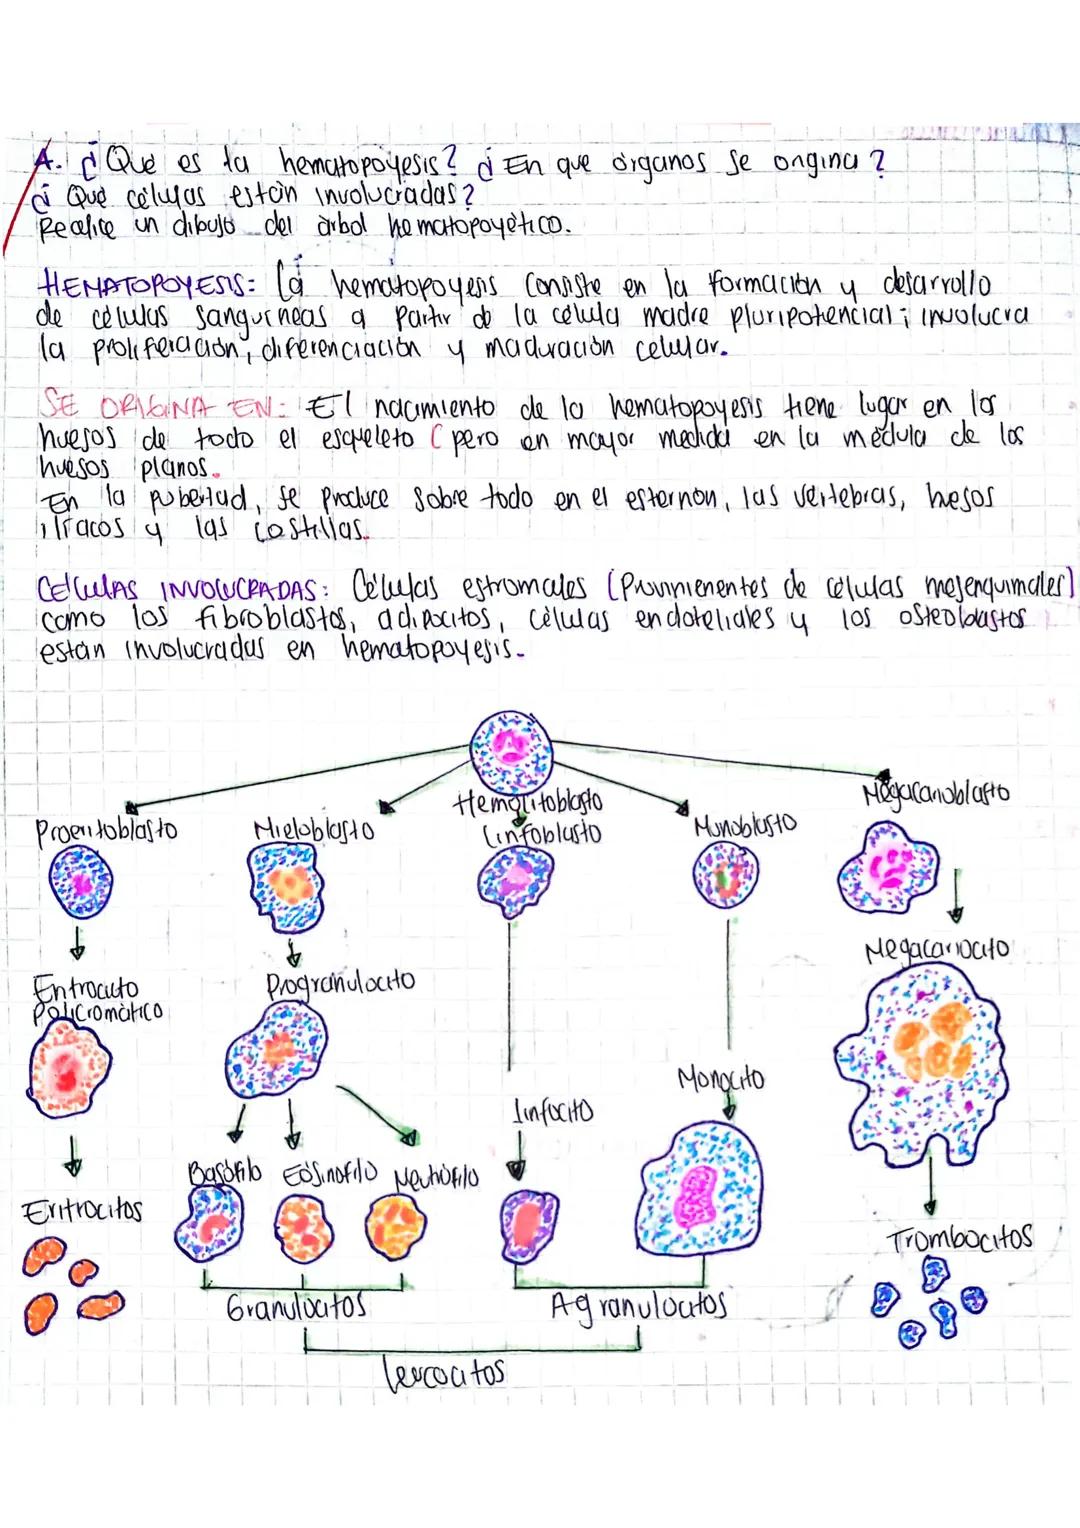 A. ¿Que es la hematopoyesis? ¿En que órganos se origina?
¿Que células están involucradas?
Realice un dibujo del árbol hematopoyético.
HEMATOPOYESIS: La hematopoyesis consiste en la formación y desarrollo
de celulas sanguineas a partir de la célula madre pluripotencial; involucra
la proliferación, diferenciación y maduración celular.
SE ORIGINA EN: El nacimiento de la hematopoyesis tiene lugar en los
huesos de todo el esqueleto (pero en mayor medida en la médula de los
huesos planos.
En la pubertad, se produce sobre todo en el esternón, las vertebras, huesos
iliacos y las costillas.
CÉLULAS INVOLUCRADAS: Células estromales (Provinienentes de células mesenquimales)
como los fibroblastos, adipocitos, células endoteliales y los osteoblastos
están involucradas en hematopoyesis.
Hemocitoblasto
Megacarioblasto
Proeritoblasto
Mieloblasto
Linfoblasto
Monoblasto
Megacariocito
Eritrocito
Policromático
Progranulocito
Monocito
Linfocito
Basófilo Eosinofilo Neutrófilo
Eritrocitos
Trombocitos
Granulocitos
Agranulocitos
Leucocitos